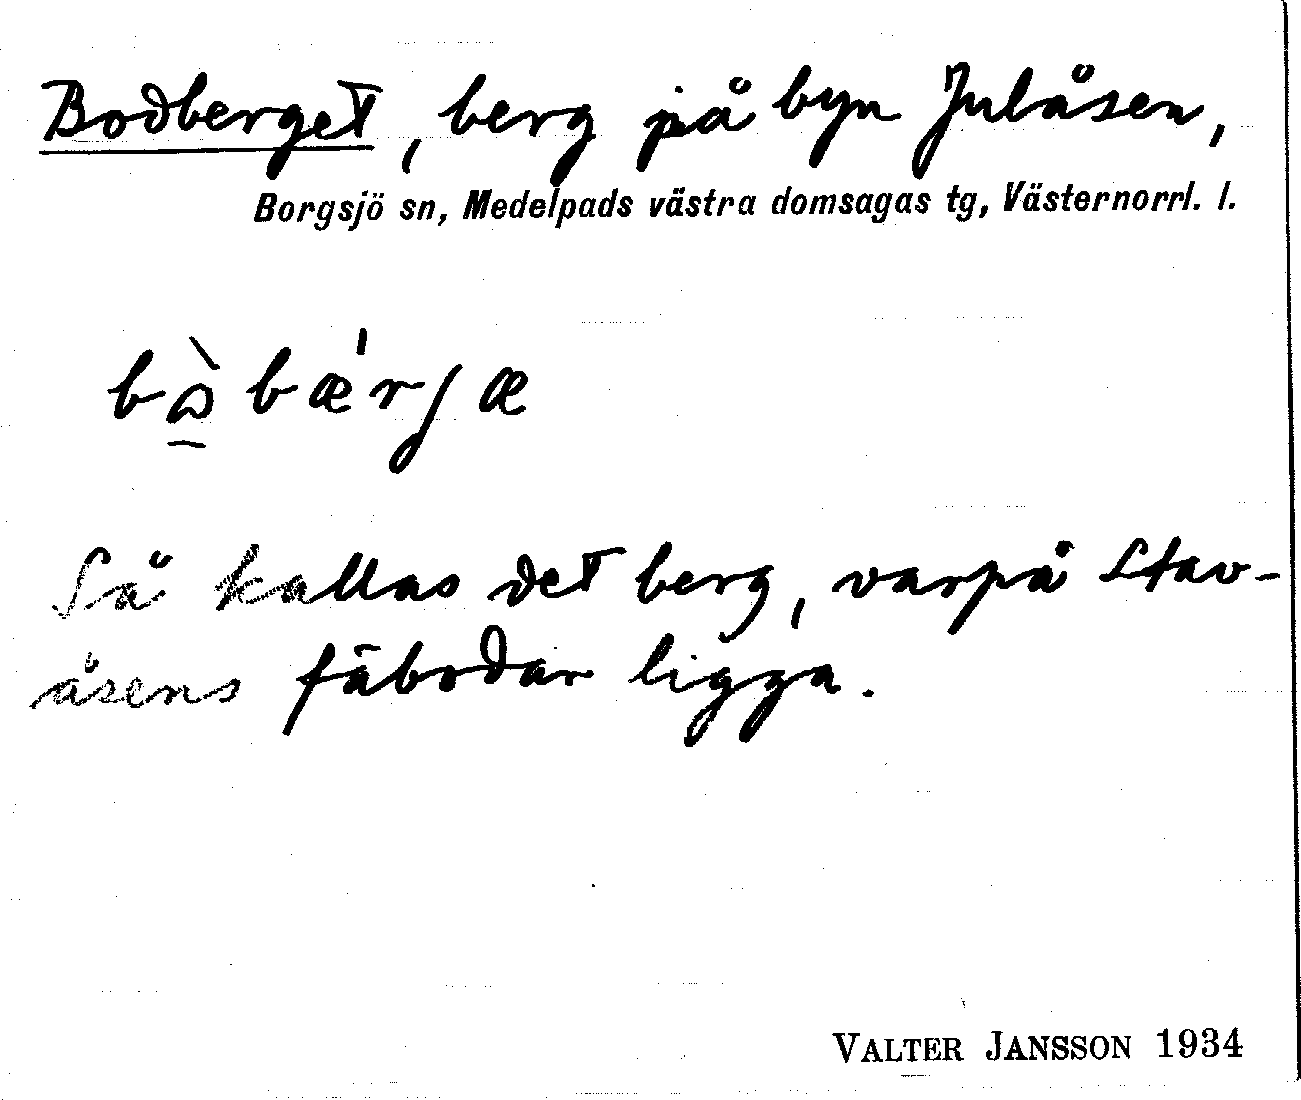 Bodberget, berg på byn Julåsen,
Borgsjö sn, Medelpads västra domsagas tg, Västernorrl. l.
Så kallas det berg, varpå Stav-
åsens fäbodar ligga.
VALTER JANSSON 1934